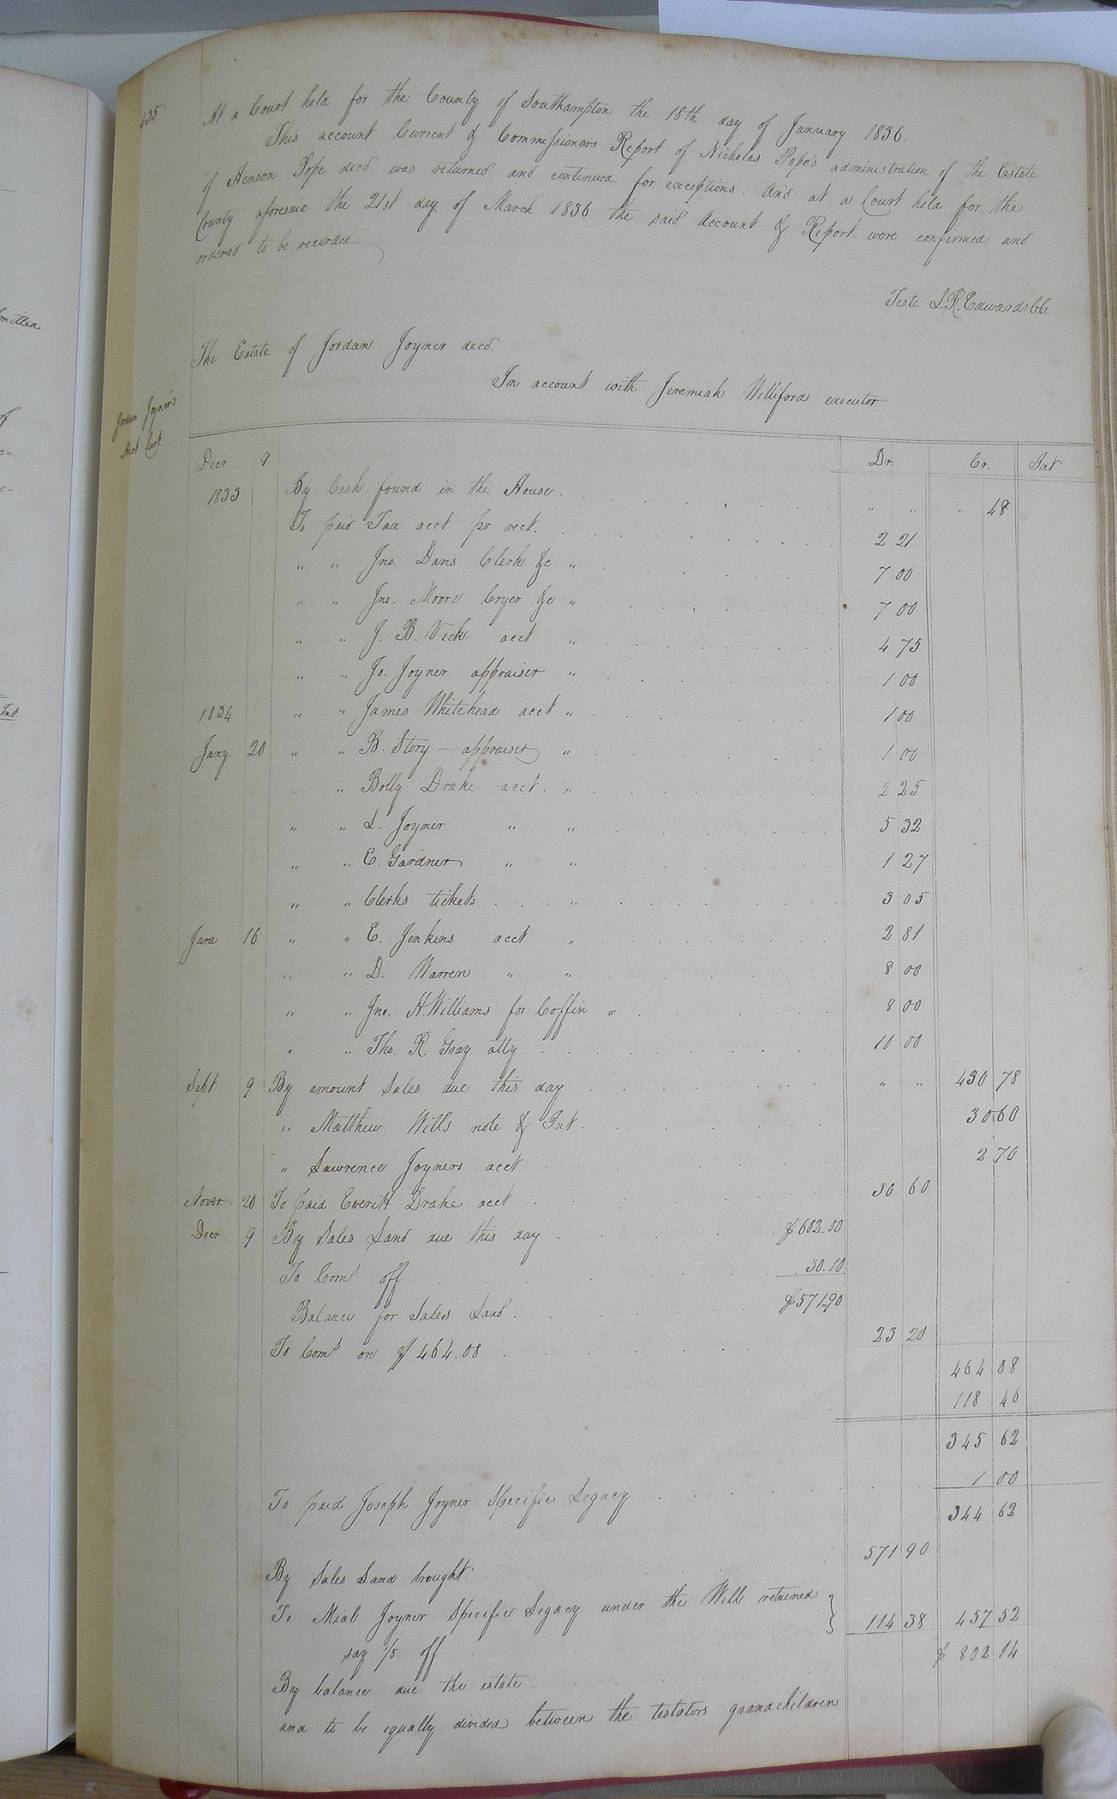 435
At a Court held for the County of Southampton the 18th day of January 1836.
This account Current & Commissioners Report of Nicholas Pope's administration of the Estate
of Henson Pope decd was returned and continued for exceptions. And at a Court held for the
County aforesaid the 21st day of March 1836 the said Account & Report were confirmed and
ordered to be recorded
Teste L.R. Edwards CC.
The Estate of Jordan Joyner decd.
In account with Jeremiah Williford executor
Jordan Joyner's
Acct Curt
Dr. Cr. Int
Decr 9
1833 By Cash found in the House . . . " " " 48
To paid Tax acct pr rect. 2 21
" " Jno. Davis Clerk &c " 7 00
" " Jno. Moore Cryer &c " 7 00
" " J. B. Vick acct " 4 75
" " Jo. Joyner appraiser " 1 00
1834 " " James Whitehead acct " 1 00
Jany 20 " " B. Story - appraiser " 1 00
" " Bolly Drake acct. " 2 25
" " L. Joyner " " 5 32
" " E. Gardner " " 1 27
" " Clerks tickets " 3 05
June 16 " " E. Jenkins acct " 2 81
" " D. Warren " " 8 00
" " Jno. H. Williams for Coffin " 8 00
" " Tho. R. Gray atty 10 00
Sept 9 By amount Sales due this day " " 430 78
" Matthew Wills note & Int. 30 60
" Lawrence Joyners acct 2 70
Novr 20 To paid Everitt Drake acct 30 60
Decr 9 By Sales Land due this day $602.00
To Coms off 30.10
Balance for Sales Land . $571.90
To Coms on $464.08 23 20
464 08
118 46
345 62
1 00
To paid Joseph Joyner Specific Legacy
344 62
571 90
By Sales Land brought
To Mial Joyner Specific Legacy under the Will retained } 114 38 457 52
say 1/5 off
$ 802 14
By balance due the estate
and to be equally divided between the testators grandchildren
mitted
of
Int